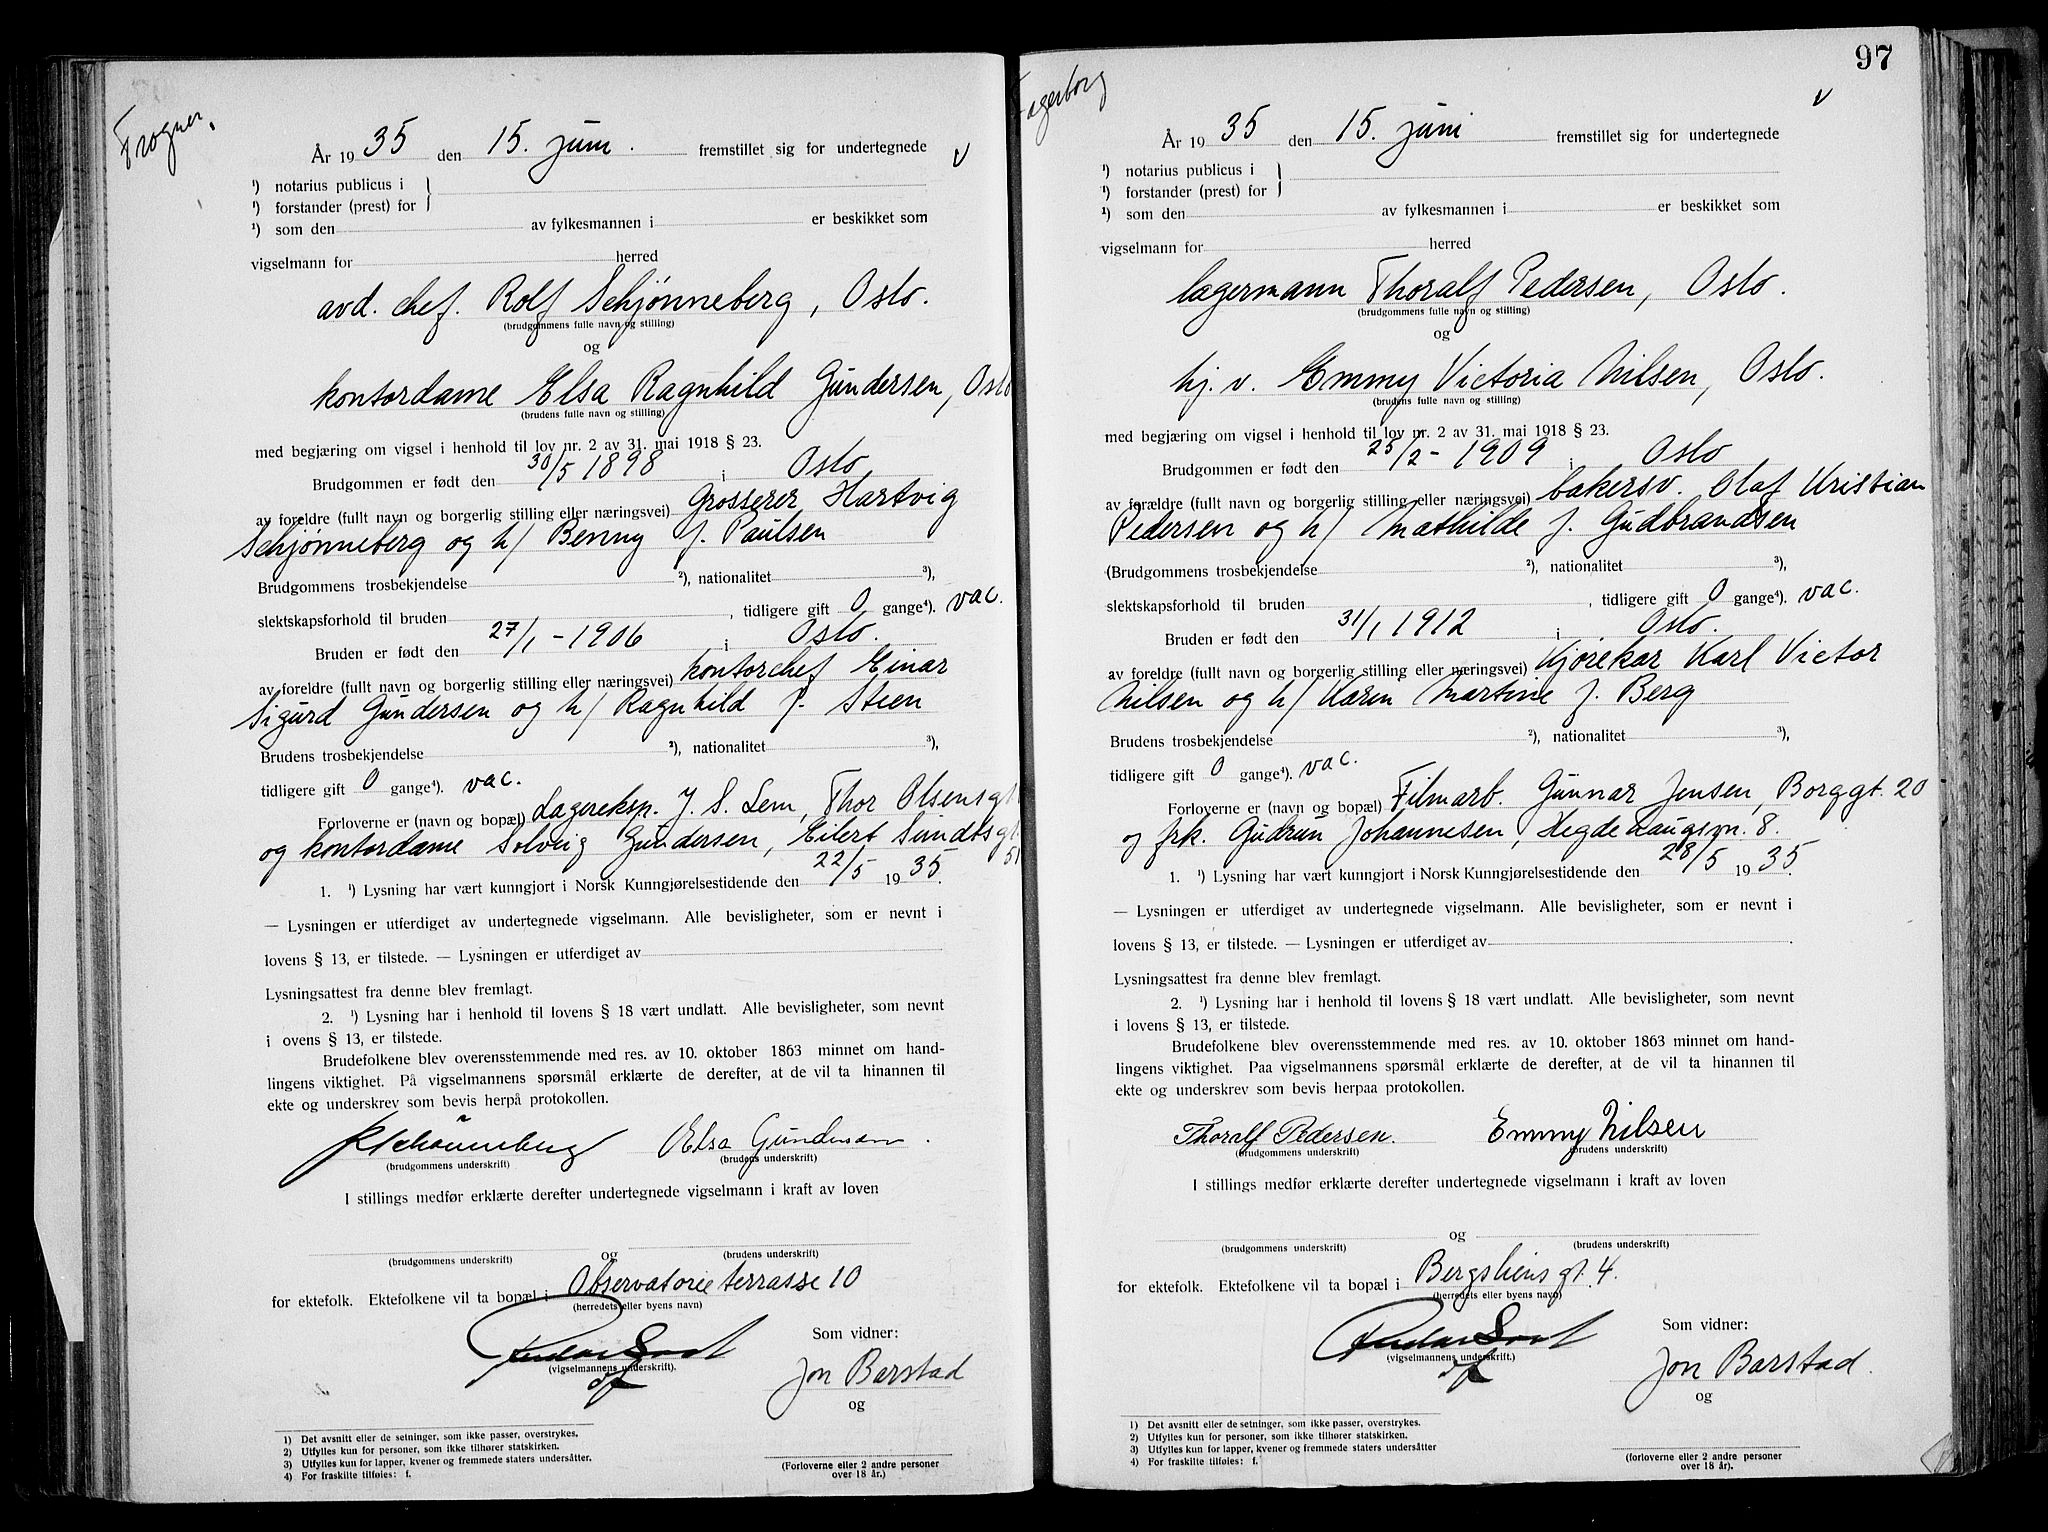 Frogner.
År 1935 den 15. juni. fremstillet sig for undertegnede
¹) notarius publicus i
¹) forstander (prest) for
¹) som den av fylkesmannen i er beskikket som
vigselmann for herred
avd. chef. Rolf Schjønneberg, Oslo.
(brudgommens fulle navn og stilling)
og
kontordame Elsa Ragnhild Gundersen, Oslo
(brudens fulle navn og stilling)
med begjæring om vigsel i henhold til lov nr. 2 av 31. mai 1918 § 23.
Brudgommen er født den 30/5 1898 i Oslo
av foreldre (fullt navn og borgerlig stilling eller næringsvei) Grosserer Hartvig
Schjønneberg og h/ Benny f. Paulsen
Brudgommens trosbekjendelse ²), nationalitet ³),
slektskapsforhold til bruden , tidligere gift 0 gange⁴). vac.
Bruden er født den 27/1 - 1906 i Oslo.
av foreldre (fullt navn og borgerlig stilling eller næringsvei) kontorchef Einar
Sigurd Gundersen og h/ Ragnhild f. Steen
Brudens trosbekjendelse ²), nationalitet ³),
tidligere gift 0 gange⁴). vac.
Forloverne er (navn og bopæl) Lagereksp. J. S. Lem, Thor Olsensgt
og kontordame Solveig Gundersen, Eilert Sundtsgt. 51
1. ¹) Lysning har vært kunngjort i Norsk Kunngjørelsestidende den 22/5 1935.
— Lysningen er utferdiget av undertegnede vigselmann. Alle bevisligheter, som er nevnt i
lovens § 13, er tilstede. — Lysningen er utferdiget av
Lysningsattest fra denne blev fremlagt.
2. ¹) Lysning har i henhold til lovens § 18 vært undlatt. Alle bevisligheter, som nevnt
i ovens § 13, er tilstede.
Brudefolkene blev overensstemmende med res. av 10. oktober 1863 minnet om hand-
lingens viktighet. På vigselmannens spørsmål erklærte de derefter, at de vil ta hinannen til
ekte og underskrev som bevis herpå protokollen.
RSchönneberg Elsa Gundersen.
(brudgommens underskrift) (brudens underskrift)
I stillings medfør erklærte derefter undertegnede vigselmann i kraft av loven
og
(brudgommens underskrift) (brudens underskrift)
for ektefolk. Ektefolkene vil ta bopæl i Observatorie terrasse 10
(herredets eller byens navn)
Som vidner:
(vigselmannens underskrift).
Jon Barstad
og
1) Det avsnitt eller de setninger, som ikke passer, overstrykes.
2) Utfylles kun for personer, som ikke tilhører statskirken.
3) Utfylles kun for lapper, kvener og fremmede staters undersåtter.
4) For fraskilte tilføies: f.
(Forloverne eller 2 andre personer
over 18 år.)
97
Fagerborg
År 1935 den 15. juni fremstillet sig for undertegnede
¹) notarius publicus i
¹) forstander (prest) for
¹) som den av fylkesmannen i er beskikket som
vigselmann for herred
lagermann Thoralf Pedersen, Oslo.
(brudgommens fulle navn og stilling)
og
hj. v. Emmy Victoria Nilsen, Oslo.
(brudens fulle navn og stilling)
med begjæring om vigsel i henhold til lov nr. 2 av 31. mai 1918 § 23.
Brudgommen er født den 25/2 - 1909 i Oslo
av forældre (fullt navn og borgerlig stilling eller næringsvei) bakersv. Olaf Kristian
Pedersen og h/ Mathilde f. Gudbrandsen
(Brudgommens trosbekjendelse ²), nationalitet ³),
slektskapsforhold til bruden , tidligere gift 0 gange⁴). vac.
Bruden er født den 31/1 1912 i Oslo.
av foreldre (fullt navn og borgerlig stilling eller næringsvei) Kjørekar Karl Victor
Nilsen og h/ Karen Martine f. Berg
Brudens trosbekjendelse ²), nationalitet ³),
tidligere gift 0 gange⁴). vac.
Forloverne er (navn og bopæl) Filmarb. Gunnar Jensen, Borggt. 20
og frk. Gudrun Johannesen, Hegdehaugsvn. 8.
1. ¹) Lysning har vært kunngjort i Norsk Kunngjørelsestidende den 28/5 1935.
— Lysningen er utferdiget av undertegnede vigselmann. Alle bevisligheter, som er nevnt i
lovens § 13, er tilstede. — Lysningen er utferdiget av .
Lysningsattest fra denne blev fremlagt.
2. ¹) Lysning har i henhold til lovens § 18 vært undlatt. Alle bevisligheter, som nevnt
i lovens § 13, er tilstede.
Brudefolkene blev overensstemmende med res. av 10. oktober 1863 minnet om hand-
lingens viktighet. Paa vigselmannens spørsmål erklærte de derefter, at de vil ta hinannen til
ekte og underskrev som bevis herpaa protokollen.
Thoralf Pedersen. Emmy Nilsen
(brudgommens underskrift) (brudens underskrift)
I stillings medfør erklærte derefter undertegnede vigselmann i kraft av loven
og
(brudgommens underskrift) (brudens underskrift)
for ektefolk. Ektefolkene vil ta bopæl i Bergsliens gt. 4.
(herredets eller byens navn)
Som vidner:
(vigselmannens underskrift.)
Jon Barstad.
og
1) Det avsnitt eller de setninger, som ikke passer, overstrykes.
2) Utfylles kun for personer, som ikke tilhører statskirken.
3) Utfylles kun for lapper, kvener og fremmede staters undersåtter
4) For fraskilte tilføies: f.
(forloverne eller 2 andre personer
over 18 år).